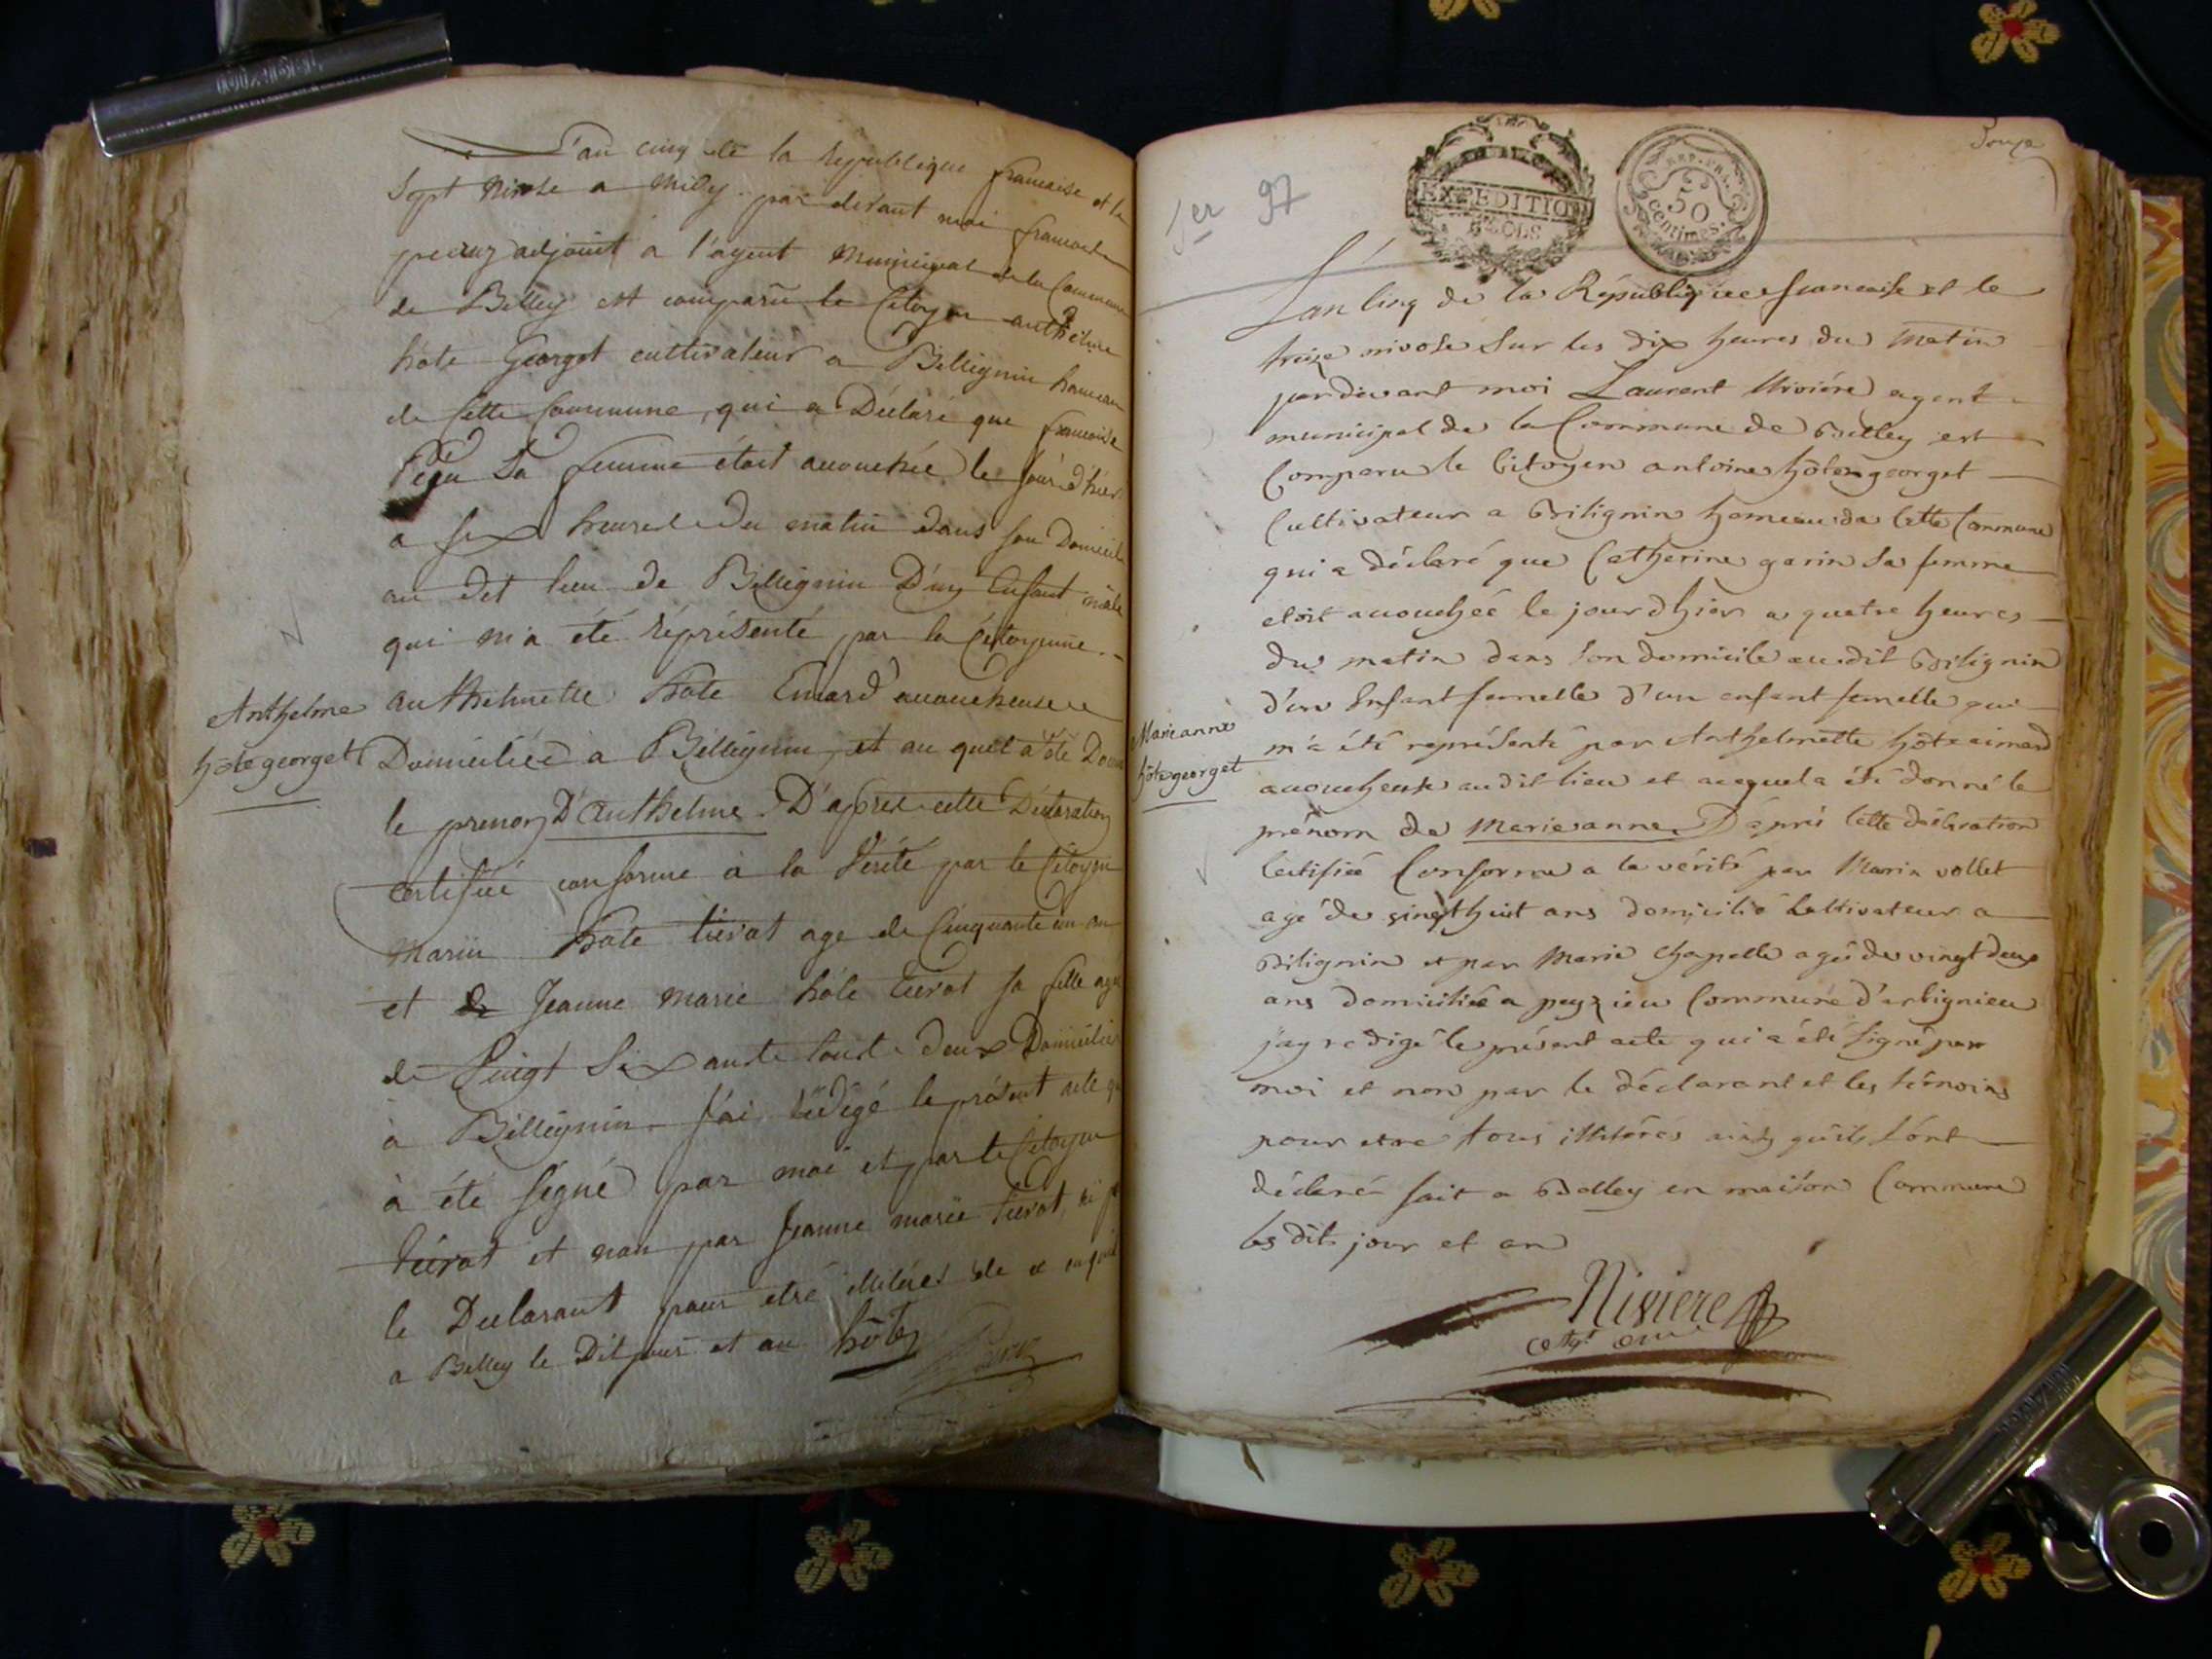 L'an cinq de la republique francaise et le
sept nivose a midy par devant moi francois
adjoint a l'agent municipal de la Commune
de Belley est comparu le Citoyen anthelme
hote Georget cultivateur a Billignin hameau
de Cette Commune, qui a Déclaré que francoise
sa femme étoit accouchée le jour d'hier
a six heures du matin dans son Domicile
au dit lieu de Billignin D'un Enfant mâle
qui m'a été représenté par la Citoyenne
anthelmette hote Emard accoucheuse
Domiciliée a Billignin, et au quel a été Donné
le prenom D'anthelme. D'apres cette Déclaration
certifiée conforme à la Vérité par le Citoyen
Marin hote tievat age de Cinquante un an
et Jeanne marie hôte tievat sa fille agée
de Vingt Six ans tout deux Domiciliés
a Billignin. J'ai rédigé le présent acte qui
à été signé par moi et par le Citoyen
tievat et non par Jeanne marie tievat, ni
le Declarant pour etre illiteres de ce
a Belley le Dit jour et an hôte
Anthelme
hôte georget
1er 97
EXPEDITION
SOLS
REP. FRA.
50
centimes
L'an Cinq de la République francaise et le
treize nivose sur les dix heures du matin
pardevant moi Laurent Nivière agent
municipal de la Commune de Belley est
Comparu le Citoyen antoine hôte georget
Cultivateur a Bilignin hameau de Cette Commune
qui a déclaré que Catherine garin sa femme
etoit accouchée le jour d'hier a quatre heures
du matin dans son domicile audit Bilignin
d'un Enfant femelle d'un enfant femelle qui
m'a été représenté par Anthelmette hôte aimard
accoucheuse audit lieu et auquel a été donné le
prénom de marie anne D'apré Cette déclaration
Certifiée Conforme a la vérité par Marin vollet
agé de vingt huit ans domicilié Cultivateur a
Bilignin et par Marie Chapelle agée de vingt deux
ans domiciliée a peyzieu Commune d'arbignieu
j'ay redigé le présent acte qui a été signé par
moi et non par le déclarant et les témoins
pour etre tous illitérés ainsy qu'ils l'ont
déclaré fait a Belley en maison Commune
les dit jour et an
Marie anne
hôte georget
Niviere